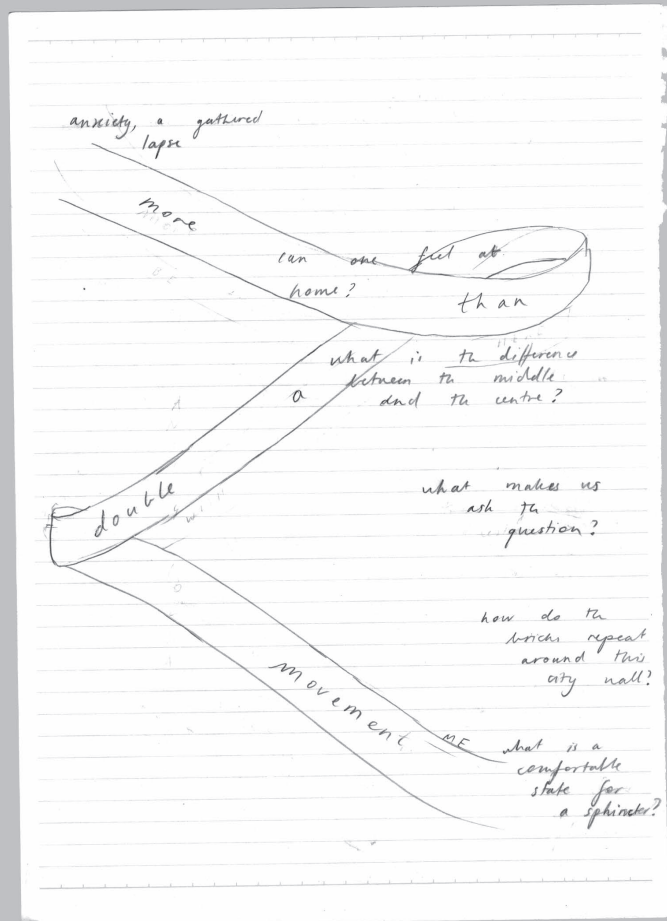 anxiety, a gathered
lapse
more
can one feel at
home?
than
what is th difference
between th middle
and th centre?
a
double
what makes us
ask th
question?
how do th
bricks repeat
around this
city wall?
movement
ME
what is a
comfortable
state for
a sphincter?